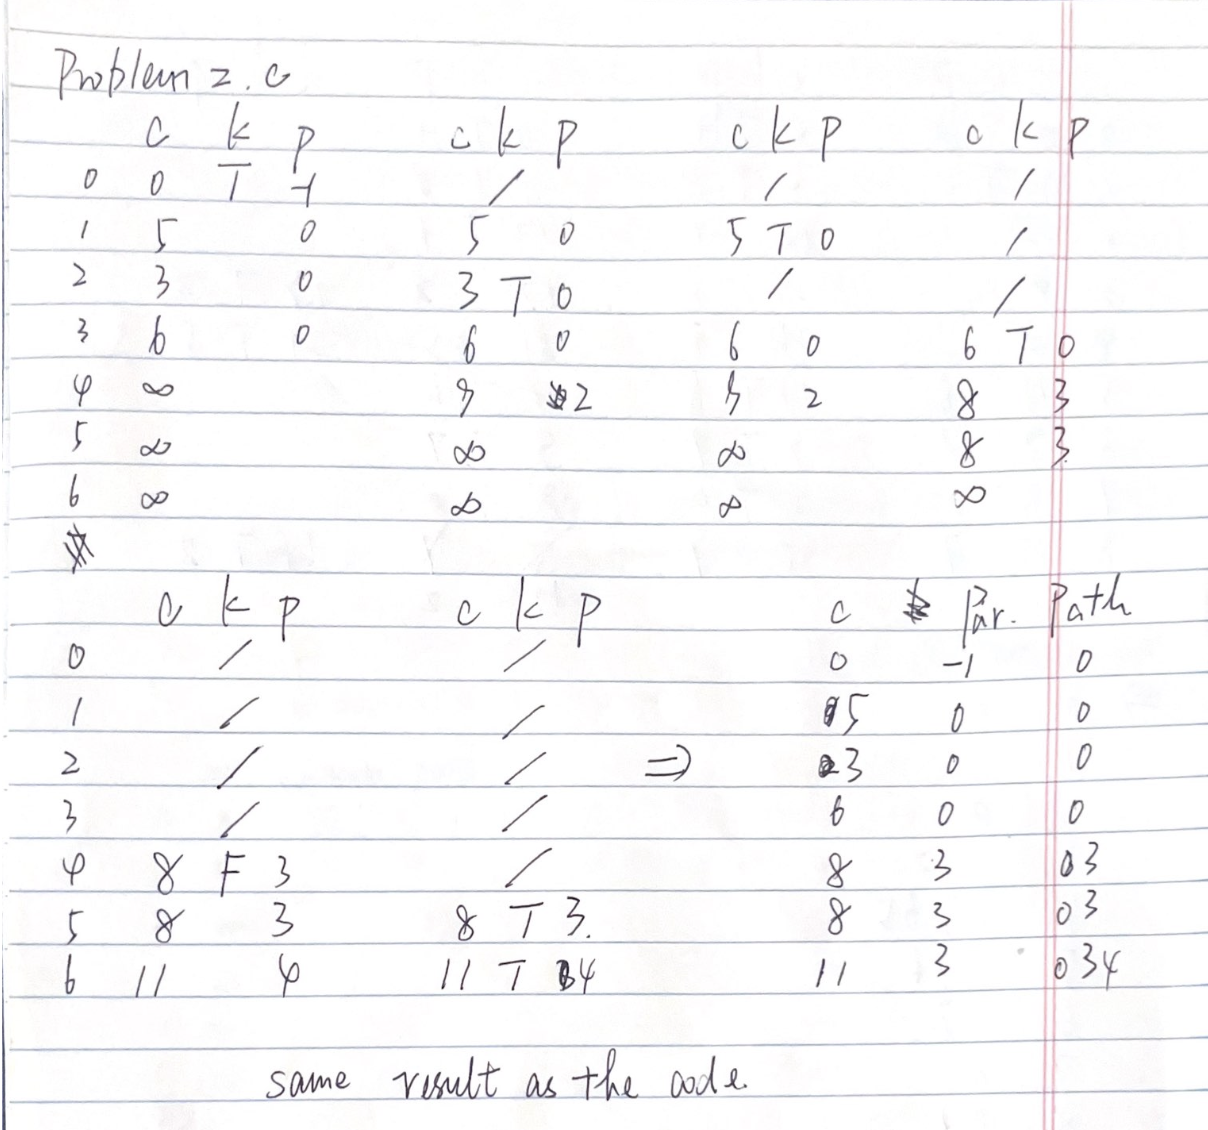 Problem 2. c
c k p c k p c k p c k p
0 0 T -1 / / /
1 5 0 5 0 5 T 0 /
2 3 0 3 T 0 / /
3 6 0 6 0 6 0 6 T 0
4 ∞ 9 2 9 2 8 3
5 ∞ ∞ ∞ 8 3
6 ∞ ∞ ∞ ∞
c k p c k p c Par. Path
0 / / 0 -1 0
1 / / 5 0 0
2 / / => 3 0 0
3 / / 6 0 0
4 8 F 3 / 8 3 03
5 8 3 8 T 3. 8 3 03
6 11 4 11 T 4 11 3 034
same result as the code